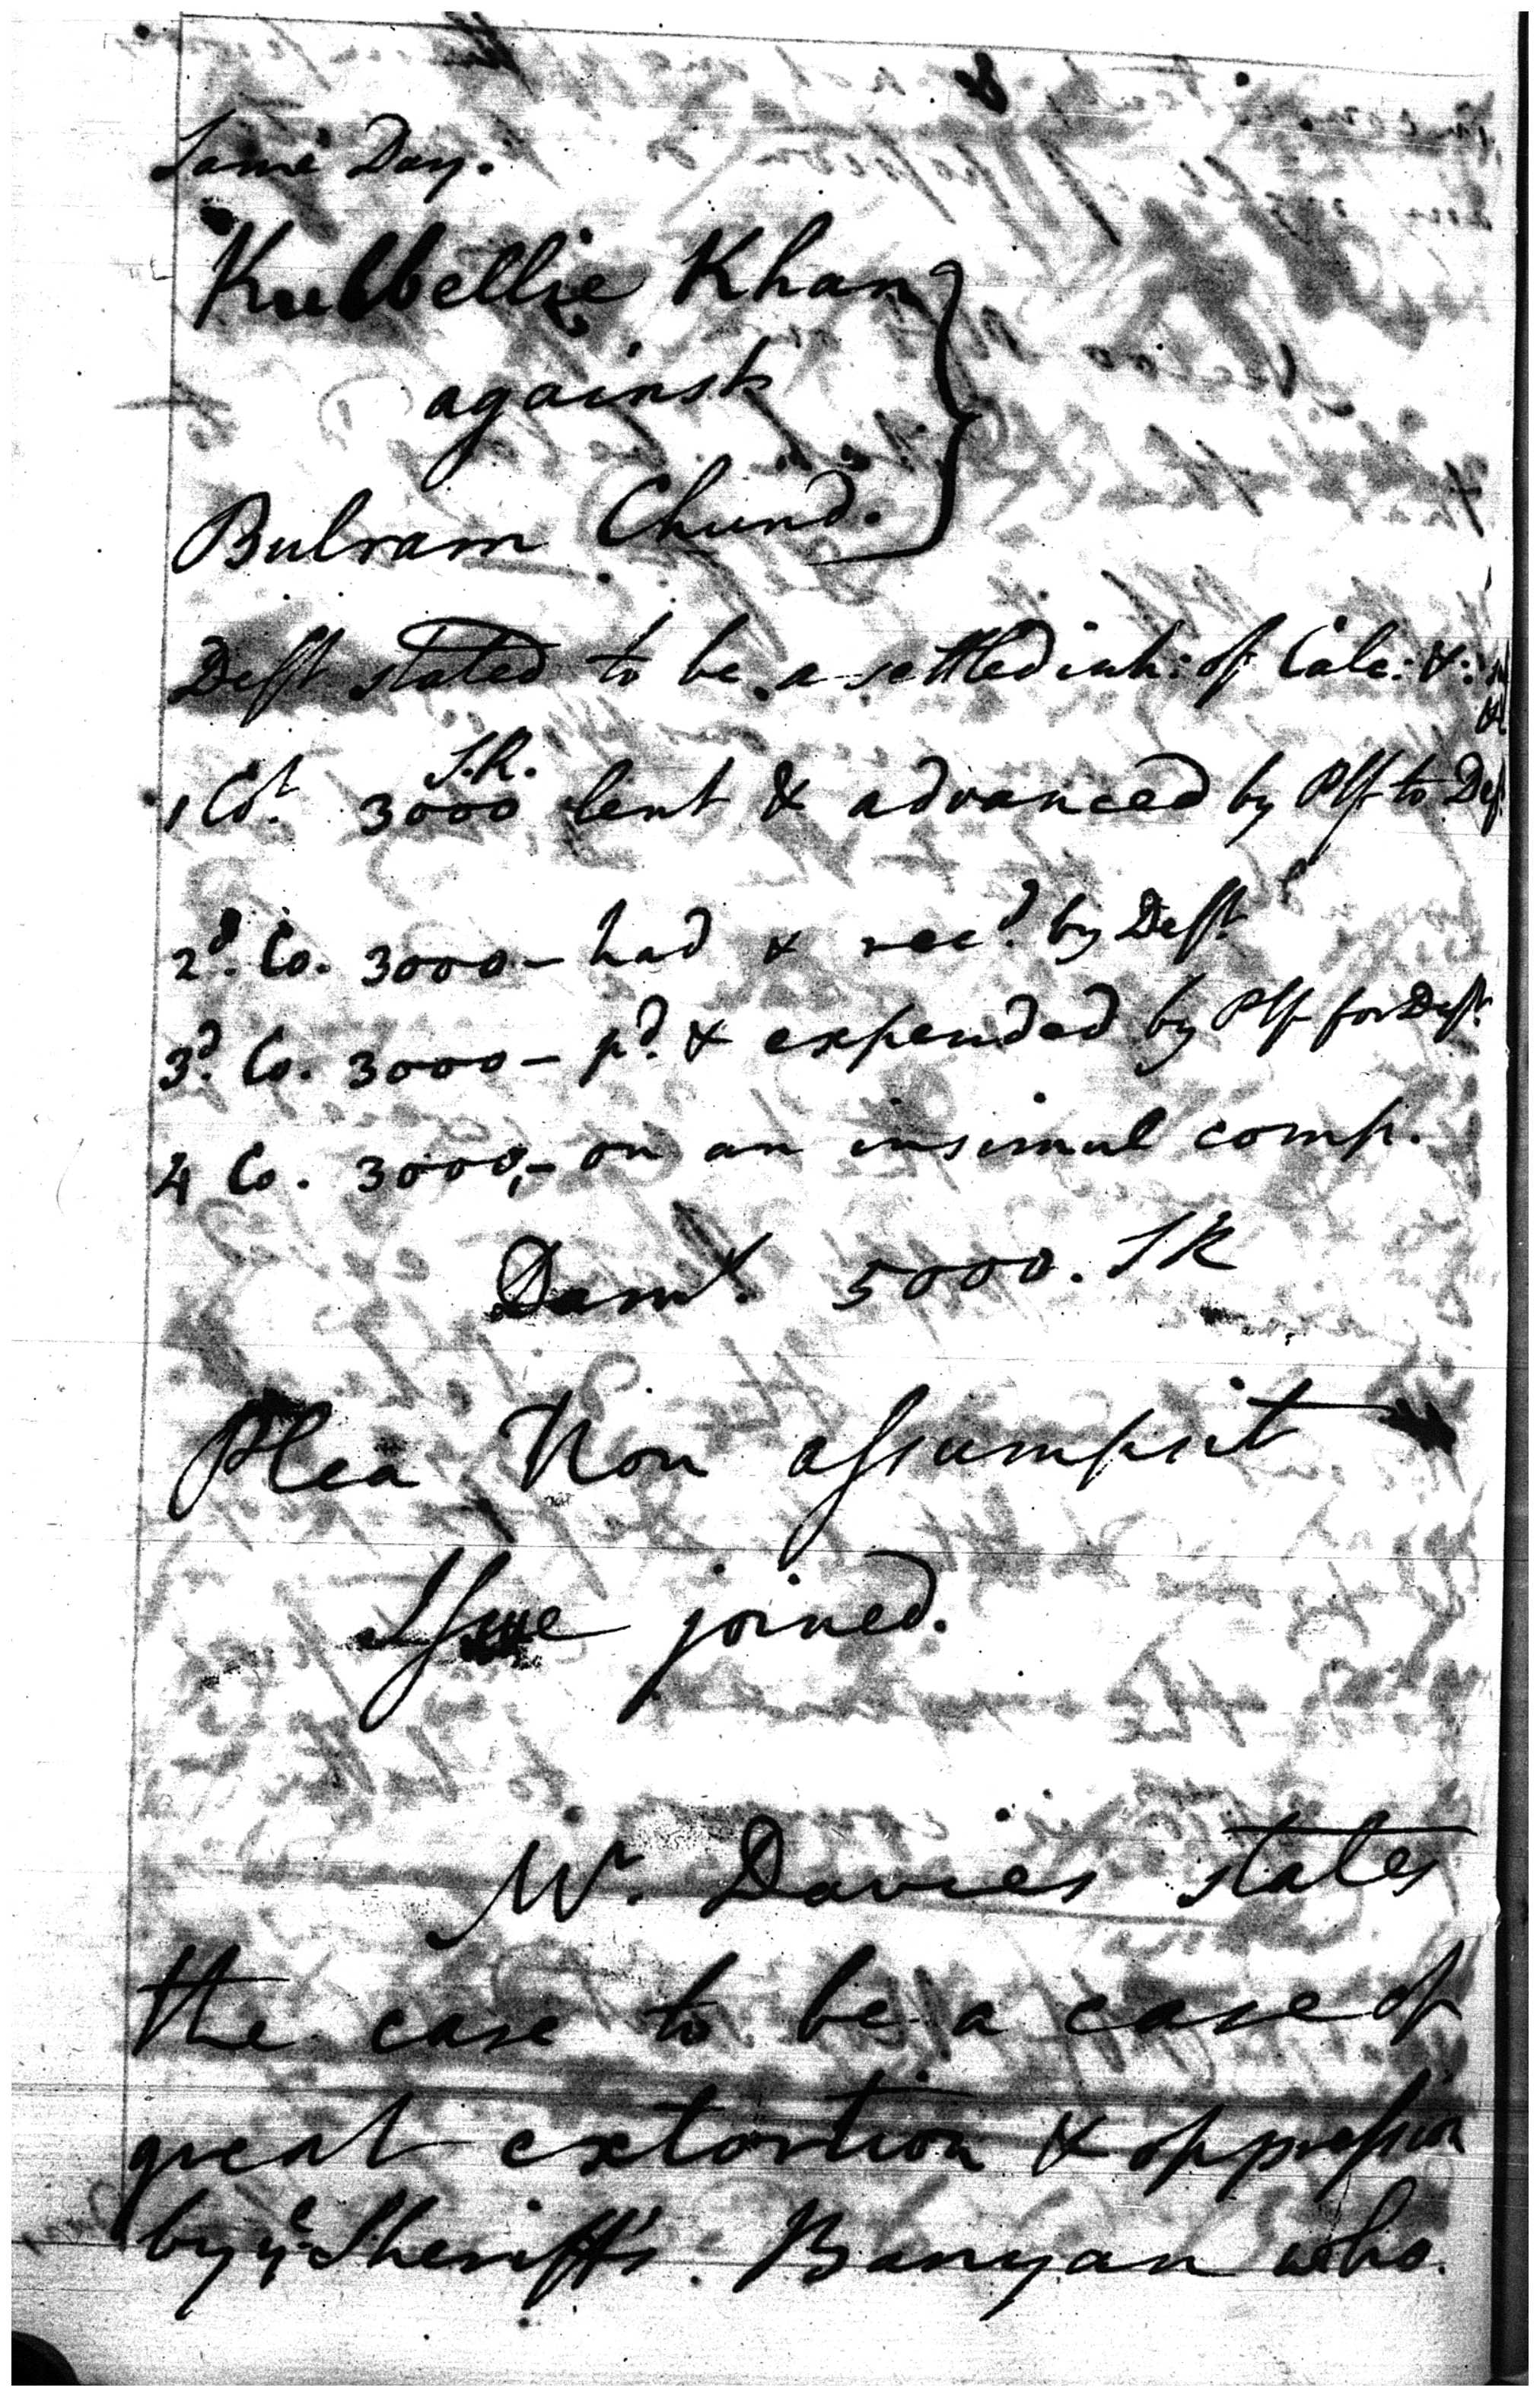 Same Day.
Kulbellie Khan
against
Bulram Chund.
Deft stated to be a settled inh: of Calc: &:
S.R.
1 Ct. 3000 lent & advanced by Plf to Def.
2d. Co. 3000 - had & recd. by Deft
3d. Co. 3000 - pd. & expended by Plf for Deft.
4 Co. 3000, - on an insimul comp.
Dams. 5000. SR
Plea Non assumpsit
Issue joined.
Mr. Davies states
the case to be a case of
great extortion & oppression
by ye Sheriff's Banyan who